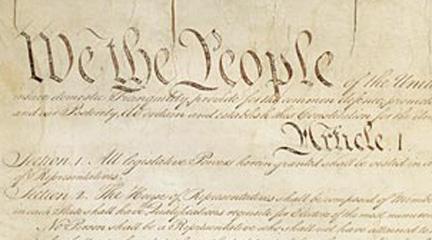 We the People of the Unit
insure domestic Tranquility, provide for the common defence, promote
and our Posterity, do ordain and establish this Constitution for the Unit
Article. I.
Section. 1. All legislative Powers herein granted shall be vested in a
of Representatives.
Section. 2. The House of Representatives shall be composed of Membe
in each State shall have Qualifications requisite for Electors of the most numerou
No Person shall be a Representative who shall not have attained to